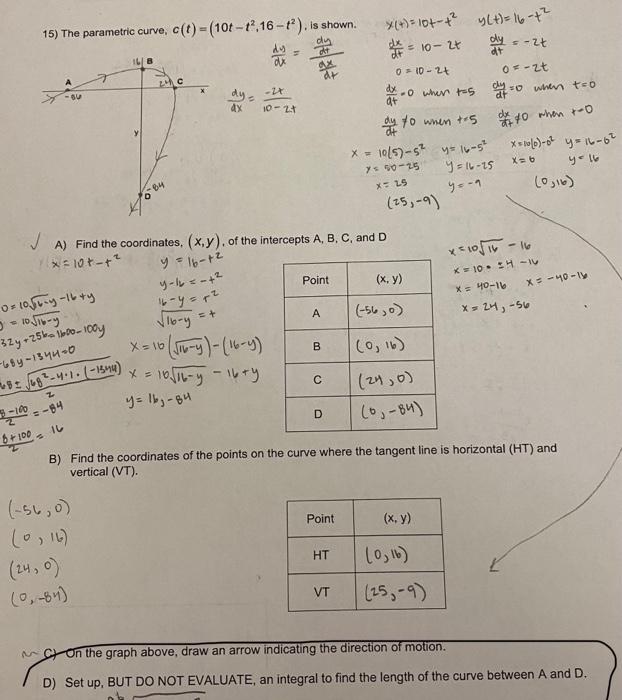 15) The parametric curve, c(t) = (10t − t², 16 − t²), is shown.
x(t) = 10t − t² y(t) = 16 − t²
dy/dx = dy/dt / dx/dt
dx/dt = 10 − 2t dy/dt = −2t
0 = 10 − 2t 0 = −2t
dy/dx = −2t / 10 − 2t
dx/dt = 0 when t=5 dy/dt = 0 when t=0
dy/dt ≠ 0 when t=5 dx/dt ≠ 0 when t=0
x = 10(5) − 5² y = 16 − 5² x = 10(0) − 0² y = 16 − 0²
x = 50 − 25 y = 16 − 25 x = 0 y = 16
x = 25 y = −9 (0, 16)
(25, −9)
16 B
A 24 C x
−56
y
−84
D
√ A) Find the coordinates, (x, y), of the intercepts A, B, C, and D
x = 10t − t² y = 16 − t²
y − 16 = −t²
16 − y = t²
√16−y = t
x = 10(√16−y) − (16−y)
x = 10√16−y − 16 + y
y = 16, −84
0 = 10√16−y − 16 + y
= 10√16−y
32y + 256 = 1600 − 100y
68y − 1344 = 0
68 ± √68² − 4·1·(−1344) / 2
8 − 100 / 2 = −84
8 + 100 / 2 = 16
x = 10√16 − 16
x = 10 · ±4 − 16
x = 40 − 16 x = −40 − 16
x = 24, −56
Point (x, y)
A (−56, 0)
B (0, 16)
C (24, 0)
D (0, −84)
B) Find the coordinates of the points on the curve where the tangent line is horizontal (HT) and
vertical (VT).
(−56, 0)
(0, 16)
(24, 0)
(0, −84)
Point (x, y)
HT (0, 16)
VT (25, −9)
C) On the graph above, draw an arrow indicating the direction of motion.
D) Set up, BUT DO NOT EVALUATE, an integral to find the length of the curve between A and D.